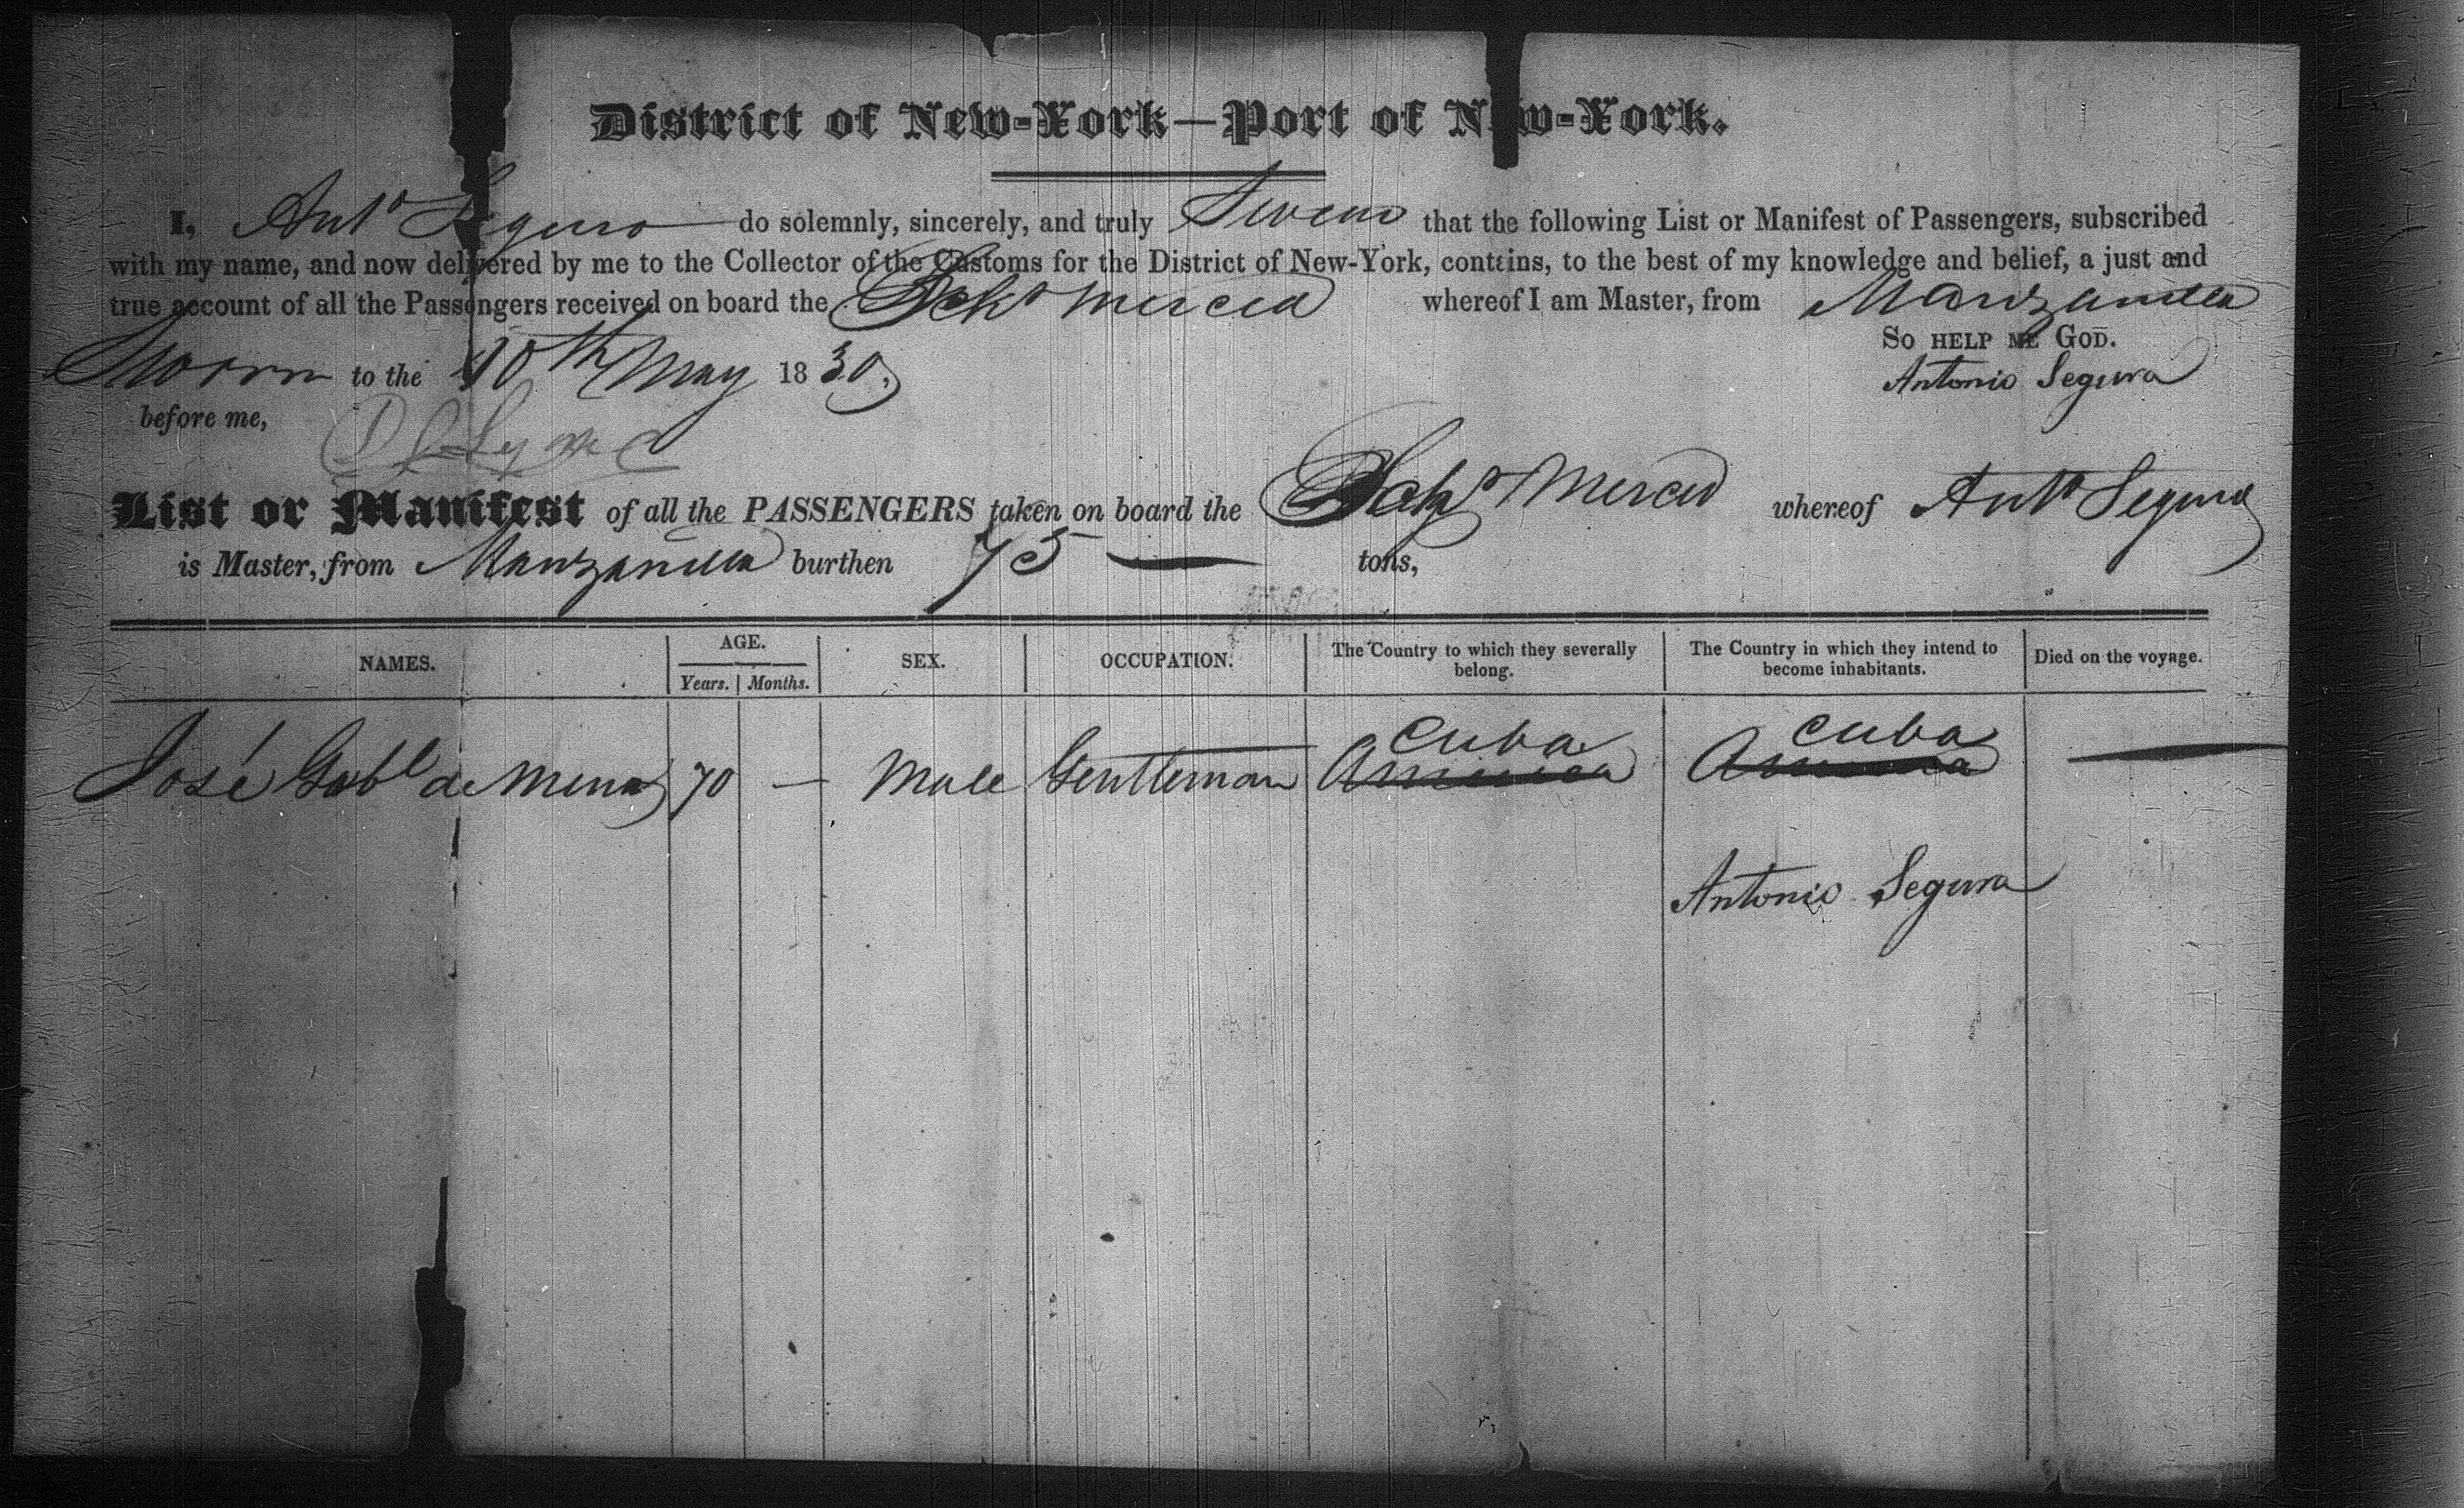 District of New-York—Port of New-York.
I, Ant° Segura do solemnly, sincerely, and truly Swear that the following List or Manifest of Passengers, subscribed
with my name, and now delivered by me to the Collector of the Customs for the District of New-York, contains, to the best of my knowledge and belief, a just and
true account of all the Passengers received on board the Schr Merced whereof I am Master, from Manzanilla
So HELP ME GOD.
Sworn to the 10th May 1830, Antonio Segura
before me,
List or Manifest of all the PASSENGERS taken on board the Schr Merced whereof Ant° Segura
is Master, from Manzanilla burthen 75 — tons,
NAMES. AGE. SEX. OCCUPATION. The Country to which they severally belong. The Country in which they intend to become inhabitants. Died on the voyage.
Years. Months.
Cuba Cuba
José Gabl de Mena 70 — Male Gentleman America America —
Antonio Segura